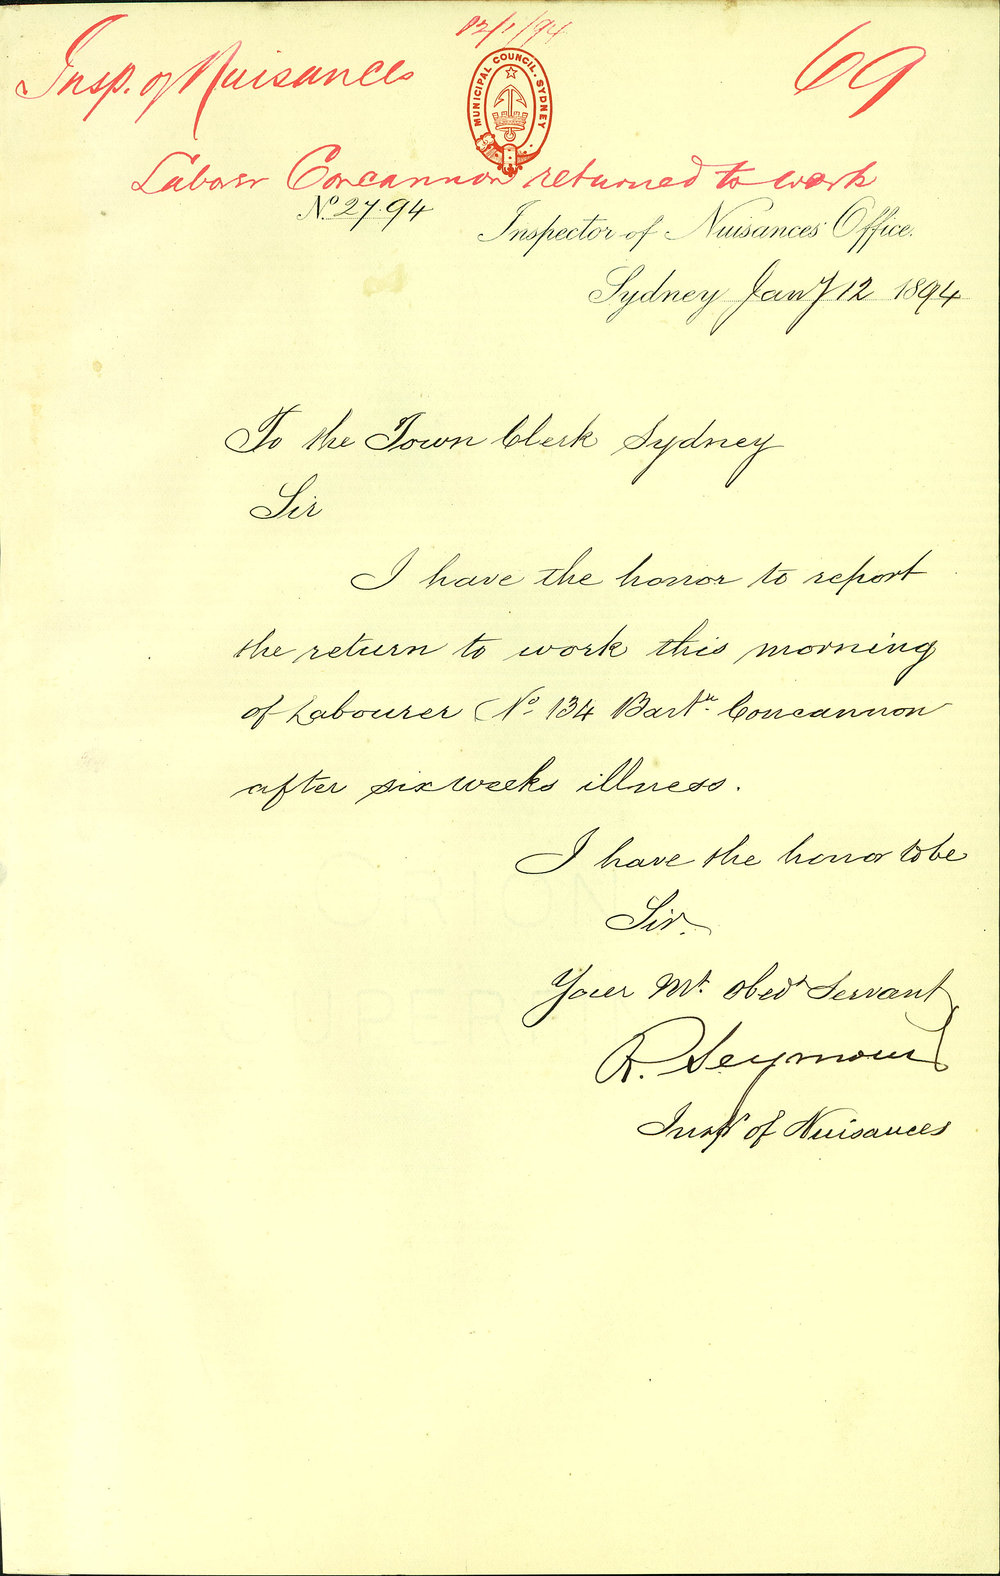 12/1/94
Insp. of Nuisances
69
MUNICIPAL COUNCIL. SYDNEY
Labour Concannon returned to work
No. 27.94
Inspector of Nuisances' Office.
Sydney Jany 12 1894
To the Town Clerk Sydney
Sir
I have the honor to report
the return to work this morning
of Labourer (No. 134 Bartw. Concannon
after six weeks illness.
I have the honor to be
Sir.
Your Mt. Obedt Servant
R. Seymour
Inspr of Nuisances
ORION